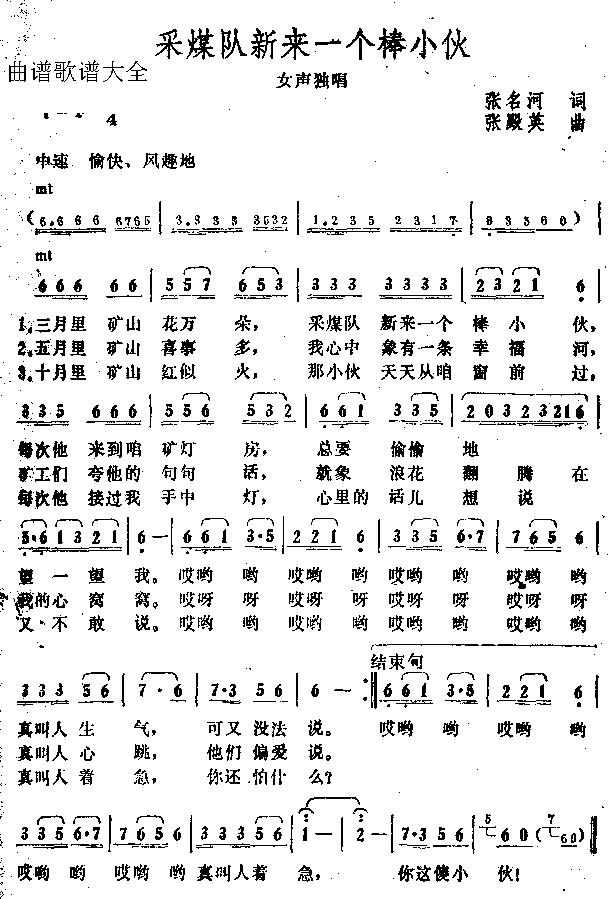 采煤队新来一个棒小伙
曲谱歌谱大全
女声独唱
张名河 词
张殿英 曲
4
中速 愉快、风趣地
mf
(6.6 6 6 6765 | 3.3 3 3 3532 | 1.2 3 5 2 3 1 7 | 6 3 3 6 0)
mf
6 6 6 6 6 | 5 5 7 6 5 3 | 3 3 3 3 3 3 3 | 2 3 2 1 6
1.三月里 矿山 花万 朵, 采煤队 新来一个 棒 小 伙,
2.五月里 矿山 喜事 多, 我心中 象有一条 幸 福 河,
3.十月里 矿山 红似 火, 那小伙 天天从咱 窗 前 过,
3 3 5 6 6 6 | 5 5 6 5 3 2 | 6 6 1 3 3 5 | 2 0 3 2 3 2 1 6
每次他 来到咱 矿灯 房, 总要 偷偷 地
矿工们 夸他的 句句 话, 就象 浪花 翻 腾 在
每次他 接过我 手中 灯, 心里的 话儿 想 说
5·6 1 3 2 1 | 6 – | 6 6 1 3·5 | 2 2 1 6 | 3 3 5 6·7 | 7 6 5 6
望 一 望 我。哎哟 哟 哎哟 哟 哎哟 哟 哎哟 哟
我的心 窝 窝。哎呀 呀 哎呀 呀 哎呀 呀 哎呀 呀
又 不 敢 说。哎哟 哟 哎哟 哟 哎哟 哟 哎哟 哟
结束句
3 3 3 5 6 | 7 · 6 | 7·3 5 5 6 | 6 – :‖ 6 6 1 3·5 | 2 2 1 6
真叫人 生 气, 可又 没法 说。 哎哟 哟 哎哟 哟
真叫人 心 跳, 他们 偏爱 说。
真叫人 着 急, 你还 怕什 么?
3 3 5 6·7 | 7 6 5 6 | 3 3 3 5 5 6 | 1 – | 1 – | 7·3 5 6 | 5 6 0 (7 6 0)
哎哟 哟 哎哟 哟 真叫人着 急, 你这傻小 伙!